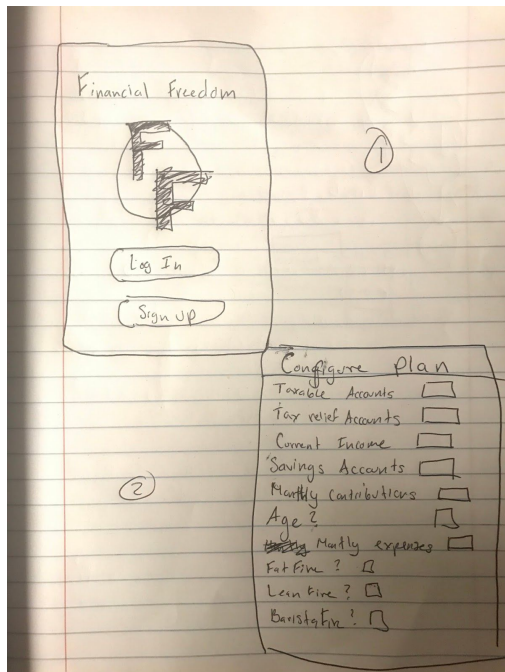 Financial Freedom
F
F
①
Log In
Sign up
Configure plan
Taxable Accounts
Tax relief Accounts
Current Income
Savings Accounts
②
Monthly contributions
Age?
Montly expenses
Fat Fire?
Lean Fire?